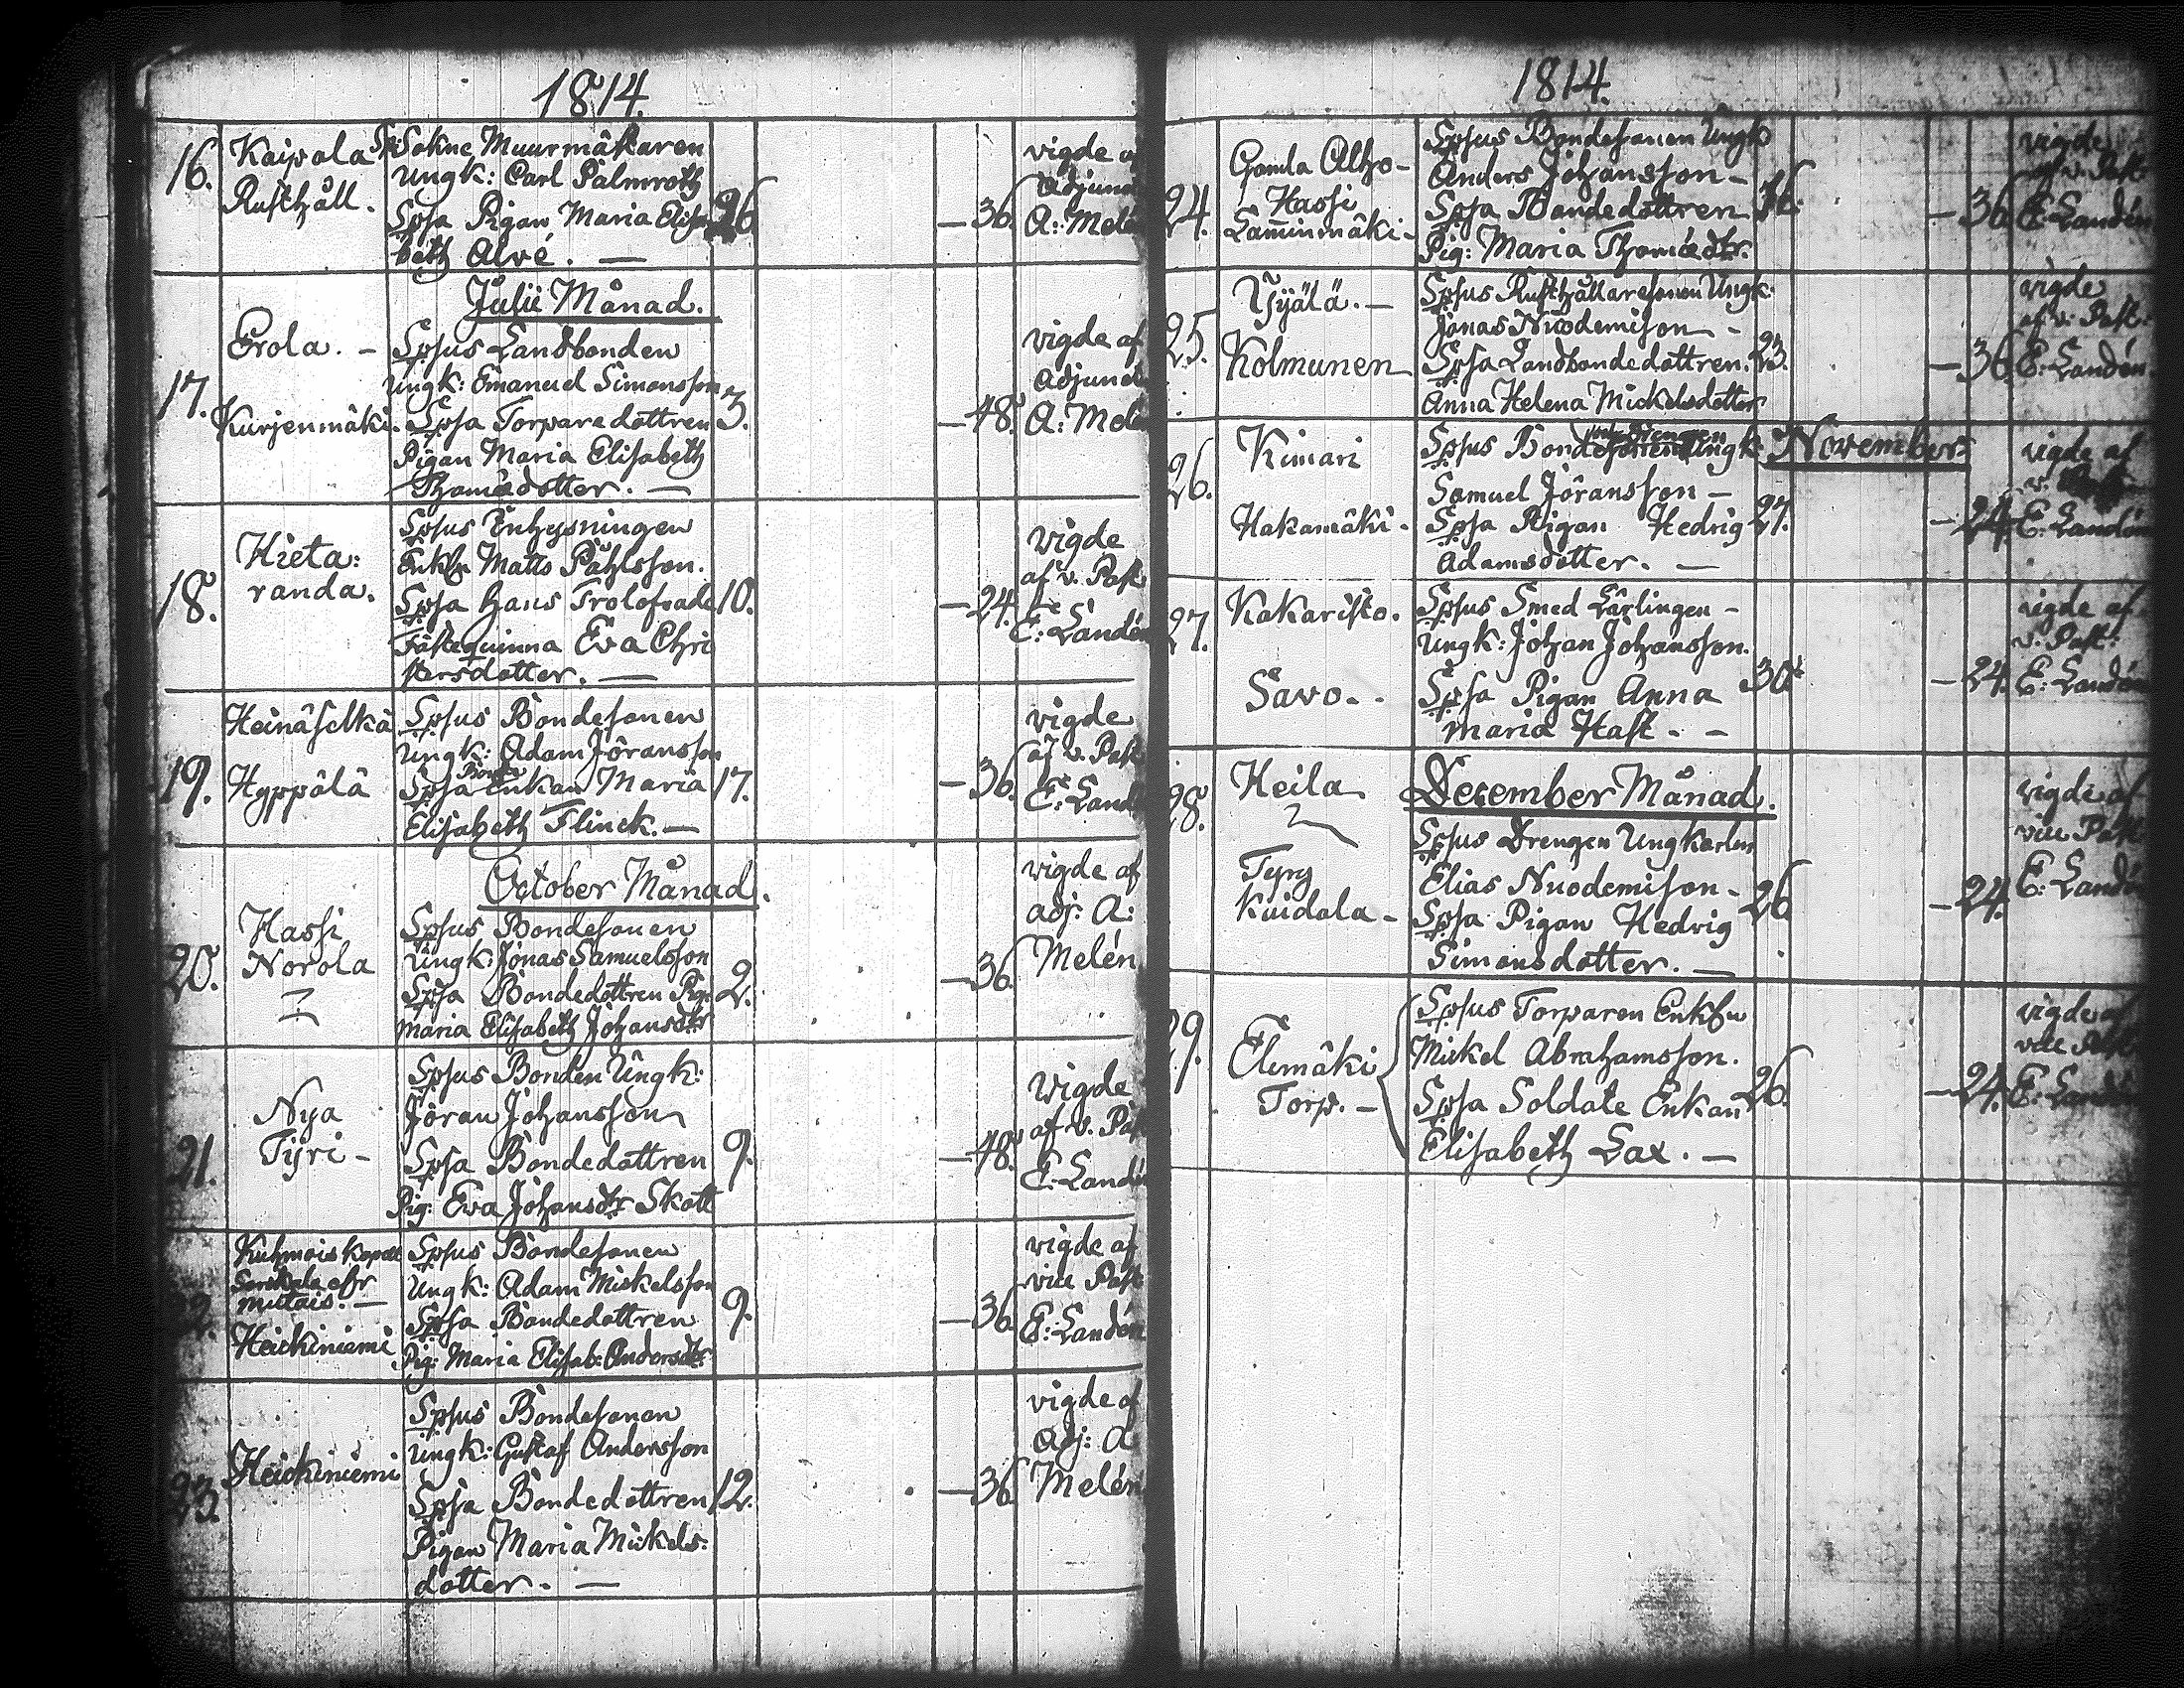 1814.
16. Kaipala Sk: Sokne Muurmäkaren vigde a
Rusthåll. Ungk: Carl Palmroth Adjun
Spsa Pigan Maria Elisa 26 — 36. A: Melé
beth Alvé. —
Julii Månad.
Erola. — Spsus Landbonden vigde af
Ungk: Emanuel Simonsson Adjunct
17. Kurjenmäki. Spsa Torparedottren 3. — 48. A: Melé
Pigan Maria Elisabeth
Thomædotter. —
Spsus Inhysningen
Hieta: Enkln Matts Påhlsson. Vigde
randa. af v. Past.
18. Spsa hans Trolofvade 10. — 24. E: Landén
Fästequinna Eva Chri
stersdotter. —
Heinäselkä Spsus Bondesonen vigde
Ungk: Adam Jöransson af v. Past
19. Hyppälä Spsa Bonde Enkan Maria 17. — 36. E: Land
Elisabeth Flinck. —
October Månad. vigde af
Hassi Spsus Bondesonen adj: A:
20. Norola Ungk: Jonas Samuelsson Melén
Spsa Bondedottren Pig: 2. — 36.
Maria Elisabeth Johansdtr
Spsus Bonden Ungk:
Nya Jöran Johansson Vigde
21. Tyri — Spsa Bondedottren 9. — 48. af v. Pa
Pig: Eva Johansdtr Skott E: Landé
Kuhmois Kapell Spsus Bondesonen vigde af
Ungk: Adam Mickelsson vice Past
mutais. — Spsa Bondedottren 9. — 36. E: Landén
Heickiniemi Pig: Maria Elisab: Andersdtr
Spsus Bondesonen vigde af
Heickiniemi Ungk: Gustaf Andersson Adj: A
23. Spsa Bondedottren 12. — 36. Melén
Pigan Maria Mickels:
dotter. —
1814.
Spsus Bondesonen Ungk vigde
Gamla Alho- Anders Johansson — af v. Past:
24. Hassi Spsa Bondedottren 16. — 36 E: Landén
Lamminmäki. Pig: Maria Thomædtr.
Yijälä. — Spsus Rusthållaresonen Ungk: vigde
25. Jonas Nicodemison — af v: Past:
Kolmunen Spsa Landbondedottren. 23. — 36. E: Landén.
Anna Helena Mickelsdotter
Kimari Spsus Bonde Drengen Ungk: November vigde af
26. Samuel Jöransson —
Hakamäki. Spsa Pigan Hedvig 27. — 24. E: Landén
Adamsdotter. —
27. Kakaristo. Spsus Smed Lärlingen — vigde af
Ungk: Johan Johansson. v. Past:
Savo. Spsa Pigan Anna 30. — 24. E: Landén
Maria Hast. —
28. Heila December Månad. vigde af
Spsus Drengen Ungkarlen vice Past.
Tyry Elias Nicodemison — E: Landén
Kuidala — Spsa Pigan Hedvig 26 — 24.
Simonsdotter. —
Spsus Torparen Enkln vigde af
29. Elemäki Mickel Abrahamsson. vice Past.
Torp. — Spsa Soldate Enkan 26. — 24. E: Landén
Elisabeth Lax. —